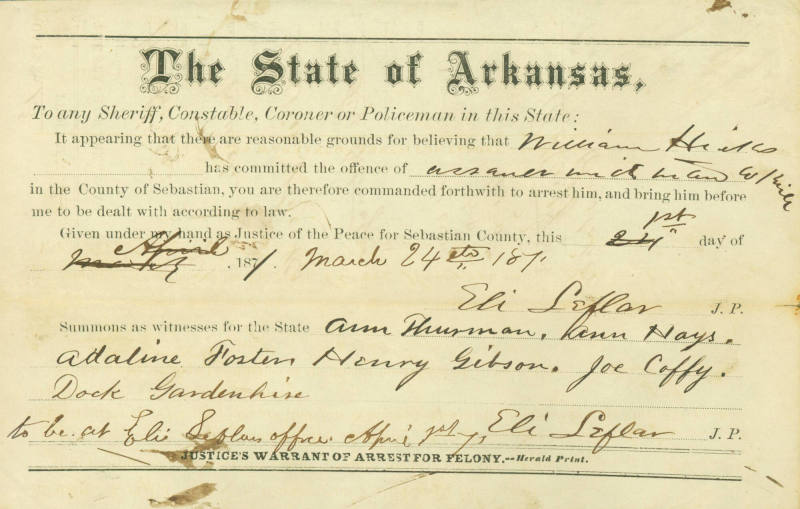 The State of Arkansas,
To any Sheriff, Constable, Coroner or Policeman in this State:
It appearing that there are reasonable grounds for believing that William Hicks
has committed the offence of assauer with intend to kill
in the County of Sebastian, you are therefore commanded forthwith to arrest him, and bring him before
me to be dealt with according to law.
1st
Given under my hand as Justice of the Peace for Sebastian County, this 24 day of
April
March , 1871. March 24th 1871
Eli Leflar J. P.
Summons as witnesses for the State Ann Thurman, Ann Hays.
Adaline Foster Henry Gibson. Joe Coffy.
Dock Gardenhire
to be at Eli Leflars office April 1st Eli Leflar J. P.
JUSTICE'S WARRANT OF ARREST FOR FELONY.--Herald Print.